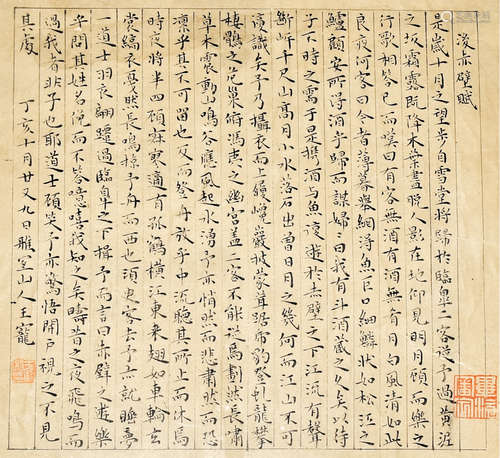 後赤壁賦
是歲十月之望步自雪堂將歸於臨皋二客從予過黃泥
之坂霜露既降木葉盡脫人影在地仰見明月顧而樂之
行歌相答已而嘆曰有客無酒有酒無肴月白風清如此
良夜何客曰今者薄暮舉網得魚巨口細鱗狀如松江之
鱸顧安所得酒乎歸而謀婦〻曰我有斗酒藏之久矣以待
子不時之需于是攜酒與魚復遊於赤壁之下江流有聲
斷岸千尺山高月小水落石出曾日月之幾何而江山不可
復識矣予乃攝衣而上履巉巖披蒙茸踞虎豹登虬龍攀
棲鶻之危巢俯馮夷之幽宮蓋二客不能從焉劃然長嘯
草木震動山鳴谷應風起水湧予亦悄然而悲肅然而恐
凜乎其不可留也反而登舟放乎中流聽其所止而休焉
時夜將半四顧寂寥適有孤鶴橫江東來翅如車輪玄
裳縞衣戛然長鳴掠予舟而西也須臾客去予亦就睡夢
一道士羽衣翩躚過臨皋之下揖予而言曰赤壁之遊樂
乎問其姓名俛而不答噫嘻我知之矣疇昔之夜飛鳴而
過我者非子也耶道士顧笑予亦驚悟開戶視之不見
其處 丁亥十月廿又九日雅宜山人王寵